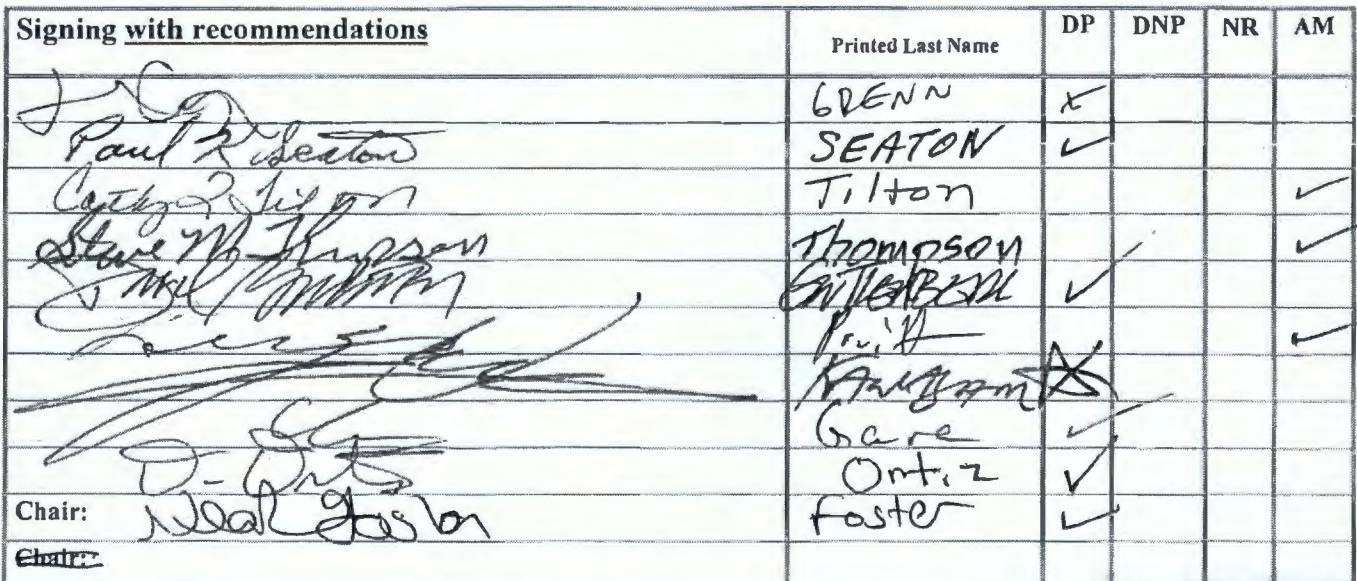 Signing with recommendations Printed Last Name DP DNP NR AM
GRENN x
Paul K Seaton SEATON ✓
Cathy L Tilton Tilton ✓
Steve M Thompson Thompson ✓
GUTTENBERG ✓
Pruitt ✓
KAWASAKI X
Gara ✓
D- Ortiz Ortiz ✓
Chair: Neal Foster Foster ✓
Chair: